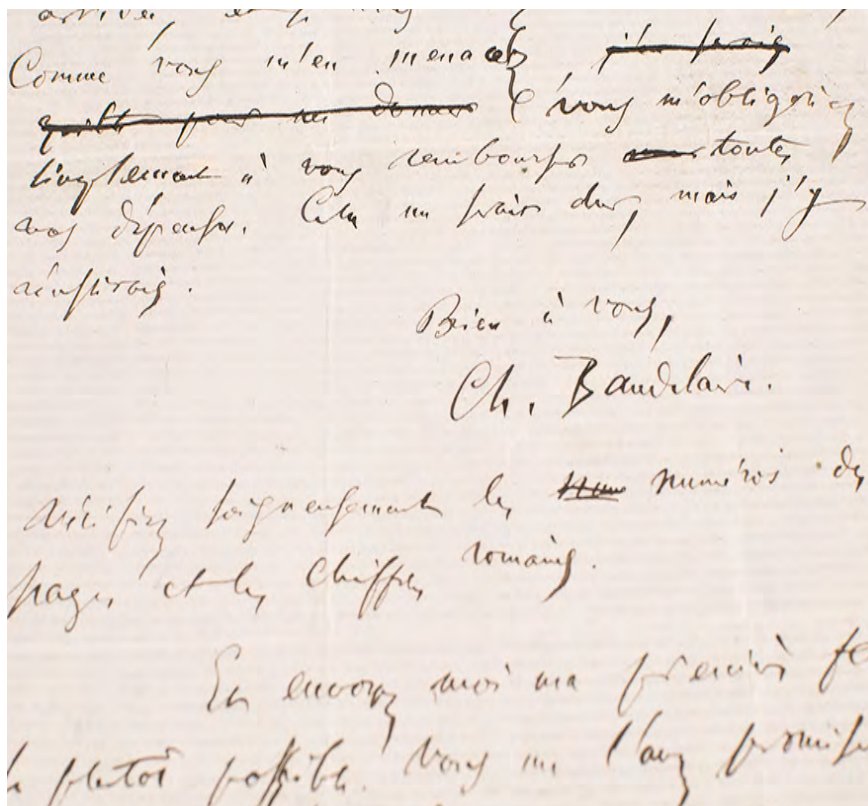 Comme vous m'en menacez j'en serais
quitte pour me donner & vous m'obligeriez
simplement à vous rembourser toutes
vos dépenses. Cela me serait dur, mais j'y
réussirais.
Bien à vous,
Ch. Baudelaire.
Vérifiez soigneusement les numéros des
pages et les chiffres romains.
Et envoyez moi ma première fe
plutot possible. Vous me l'avez promise